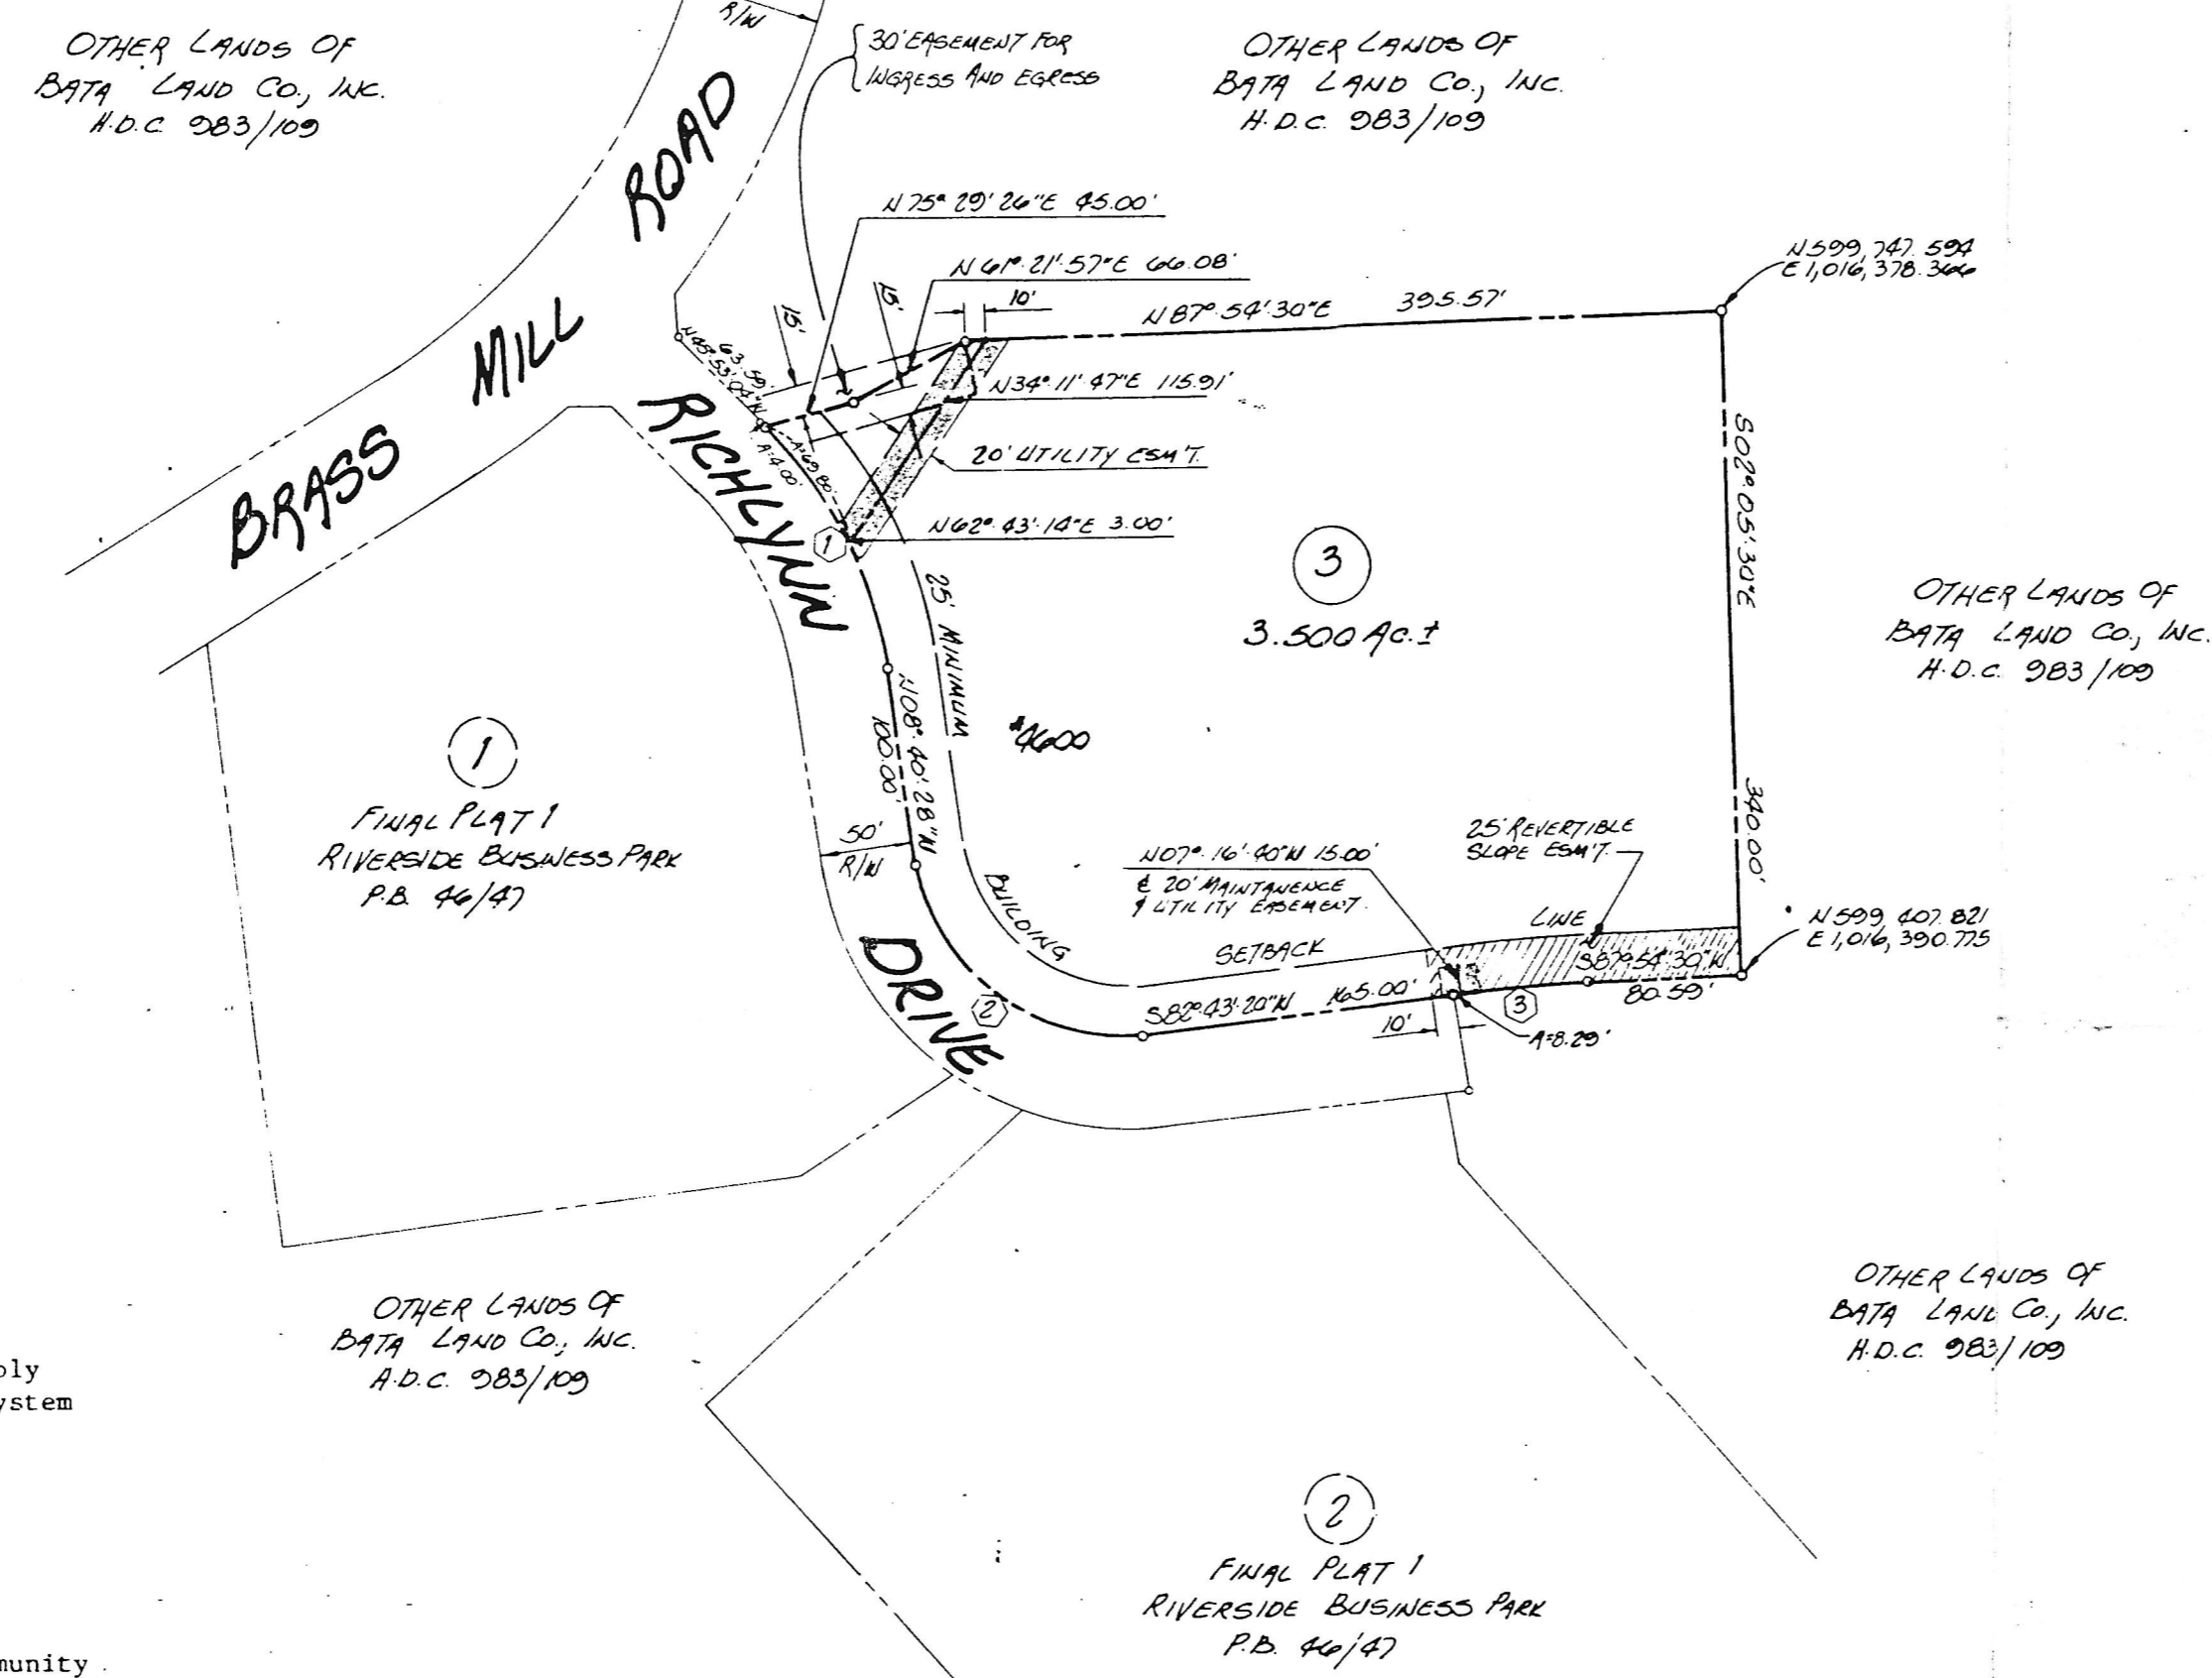 R/W
OTHER LANDS OF
BATA LAND CO., INC.
H.D.C. 983/109
30' EASEMENT FOR
INGRESS AND EGRESS
OTHER LANDS OF
BATA LAND CO., INC.
H.D.C. 983/109
BRASS MILL ROAD
N75° 29' 26"E 45.00'
N61° 21' 57"E 66.08'
15'
15'
10'
N87° 54' 30"E 395.57'
N599,747.594
E1,016,378.366
63.59'
N45° 53' 04"W
N34° 11' 47"E 115.91'
A=69.80'
A=4.00'
20' UTILITY ESM'T.
N62° 43' 14"E 3.00'
RICHLYNN DRIVE
1
3
3.500 AC.±
S02° 05' 30"E
340.00'
OTHER LANDS OF
BATA LAND CO., INC.
H.D.C. 983/109
25' MINIMUM BUILDING SETBACK LINE
N08° 40' 28"W
100.00'
#4600
1
FINAL PLAT 1
RIVERSIDE BUSINESS PARK
P.B. 46/47
50'
R/W
N07° 16' 40"W 15.00'
¢ 20' MAINTANENCE
& UTILITY EASEMENT.
25' REVERTIBLE
SLOPE ESM'T.
N599,407.821
E1,016,390.775
S87° 54' 30"W
80.59'
2
S82° 43' 20"W 165.00'
10'
3
A=8.29'
OTHER LANDS OF
BATA LAND CO., INC.
H.D.C. 983/109
OTHER LANDS OF
BATA LAND CO., INC.
A.D.C. 983/109
ply
ystem
2
FINAL PLAT 1
RIVERSIDE BUSINESS PARK
P.B. 46/47
munity